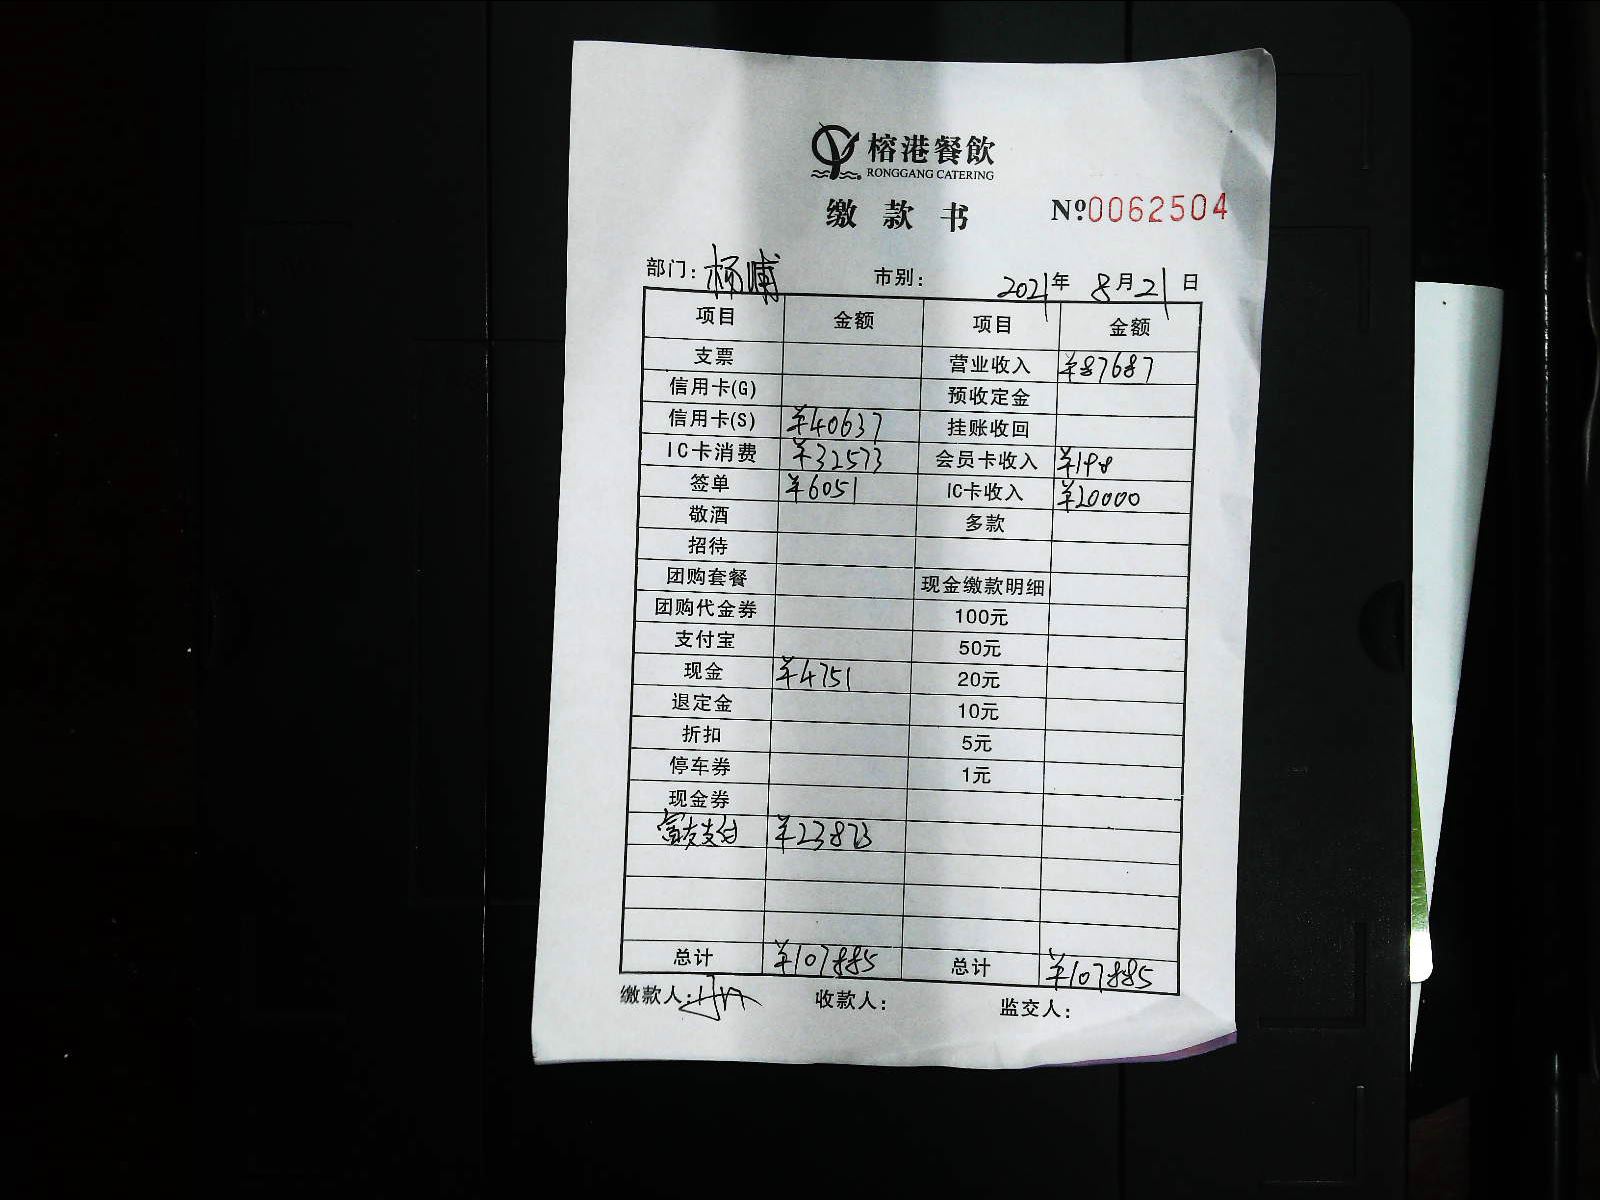 榕港餐飲
RONGGANG CATERING
缴款书 №0062504
部门：杨浦 市别： 2021年 8月21日
项目 金额 项目 金额
支票 营业收入 ¥87687
信用卡(G) 预收定金
信用卡(S) ¥40637 挂账收回
IC卡消费 ¥32573 会员卡收入 ¥198
签单 ¥6051 IC卡收入 ¥20000
敬酒 多款
招待
团购套餐 现金缴款明细
团购代金券 100元
支付宝 50元
现金 ¥4751 20元
退定金 10元
折扣 5元
停车券 1元
现金券
富友支付 ¥23873
总计 ¥107885 总计 ¥107885
缴款人： 收款人： 监交人：